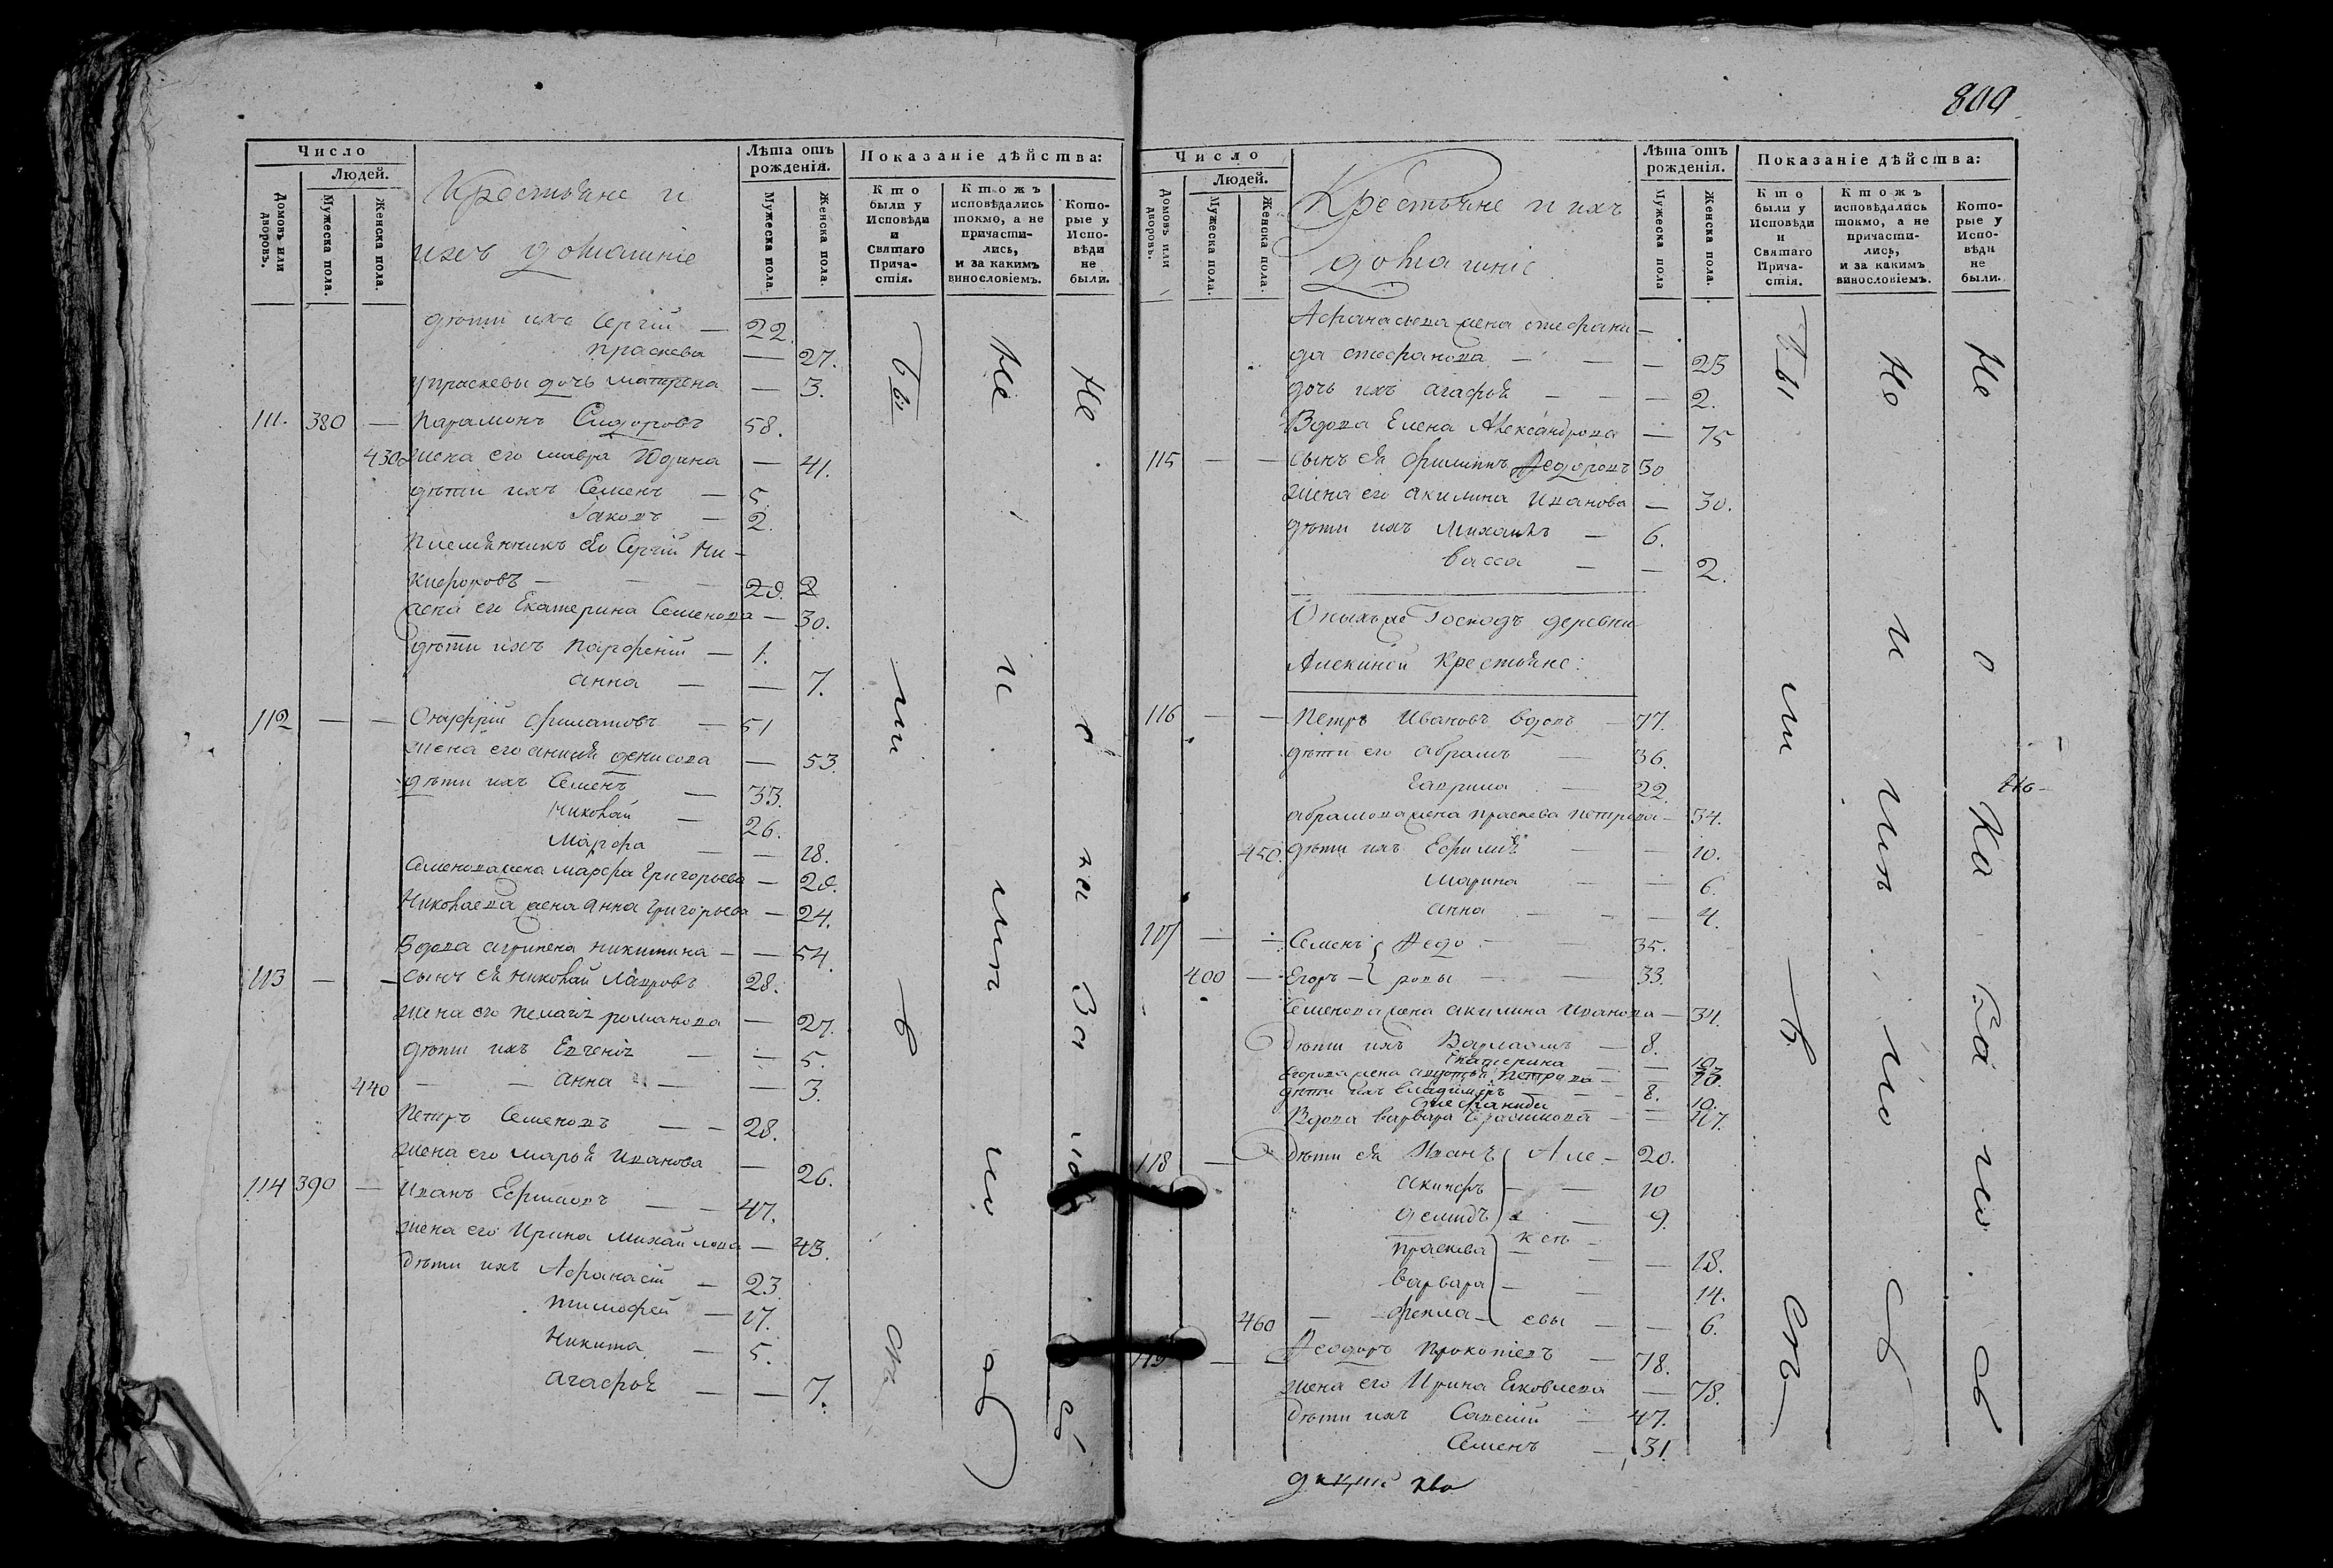 Число
Людей.
Домовъ или дворовъ.
Мужеска пола.
Женска пола.
Крестьяне и
ихъ домашніе
Лѣта отъ рожденія.
Мужеска пола.
Женска пола.
Показаніе дѣйства:
Кто были у Исповѣди и Святаго Причастія.
Ктожъ исповѣдались токмо, а не причастились, и за какимъ винословіемъ.
Которые у Исповѣди не были.
дѣти ихъ Сергій — 22.
Праскева — 27.
у праскевы дочь матрена — 3.
111. 380 — Парамонъ Сидоровъ 58.
430 жена его мавра Юдина — 41.
дѣти ихъ Семенъ — 5
Іаковъ — 2.
племянникъ его Сергій Ни-
кифоровъ — 28.
жена его Екатерина Семенова — 30.
дѣти ихъ Парфеній — 1.
анна — 7.
112 — — Онуфрій Филатовъ — 51
жена его денисова — 53.
дѣти ихъ Семенъ — 33.
Николай — 26.
Марфа — 18.
Семенова жена марфа Григорьева — 28.
Николаева жена Анна Григорьева — 24.
Вдова агрипена никитина — 54.
113 — — сынъ ея николай Лавровъ 28.
жена его пелагія романова — 27.
дѣти ихъ Евгенія — 5.
440 — — анна — 3.
Петръ Семеновъ — 28.
жена его марья Иванова — 26.
114 390 — Иванъ Ефимовъ — 47.
жена его Ирина Михайлова — 43.
дѣти ихъ Афанасій — 23.
тимофей — 17.
никита — 5.
агафья — 7.
Бы
ли
въ
Не
и
ни
об
Не
о
ка
за
об
809
Число
Людей.
Домовъ или дворовъ.
Мужеска пола.
Женска пола.
Крестьяне и ихъ
домашніе
Лѣта отъ рожденія.
Мужеска пола
Женска пола.
Показаніе дѣйства:
Кто были у Исповѣди и Святаго Причастія.
Ктожъ исповѣдались токмо, а не причастились, и за какимъ винословіемъ.
Которые у Исповѣди не были.
Афанасьева жена стефани-
да стефанова — 25
дочь ихъ агафья — 2.
Вдова Елена Александрова — 75
115 — — сынъ ея филиппъ Федоровъ 30.
жена его акилина Иванова — 30.
дѣти ихъ Михаилъ — 6.
васса — 2.
Оныхъ же Господъ деревни
Алекиной Крестьяне:
116 — — Петръ Ивановъ вдовъ — 77.
дѣти его абрамъ — 36.
Гаврила — 22.
абрамова жена праскева петрова — 34.
450. дѣти ихъ Ефимія — 10.
марина — 6.
анна — 4.
117 — — Семенъ Федо — 35.
400 — Егоръ ровы — 33.
Семенова жена акилина Иванова — 34.
дѣти ихъ Варлаамъ — 8.
Екатерина — 10.
Егорова жена Петрова —
дѣти ихъ владимиръ — 8.
10.
Вдова варвара — 47.
118 — дѣти ея Иванъ Але — 20.
акинфъ — 10
демидъ — 9.
праскева ксѣ — 18.
варвара — 14.
460 — фекла евы — 6.
119 — Феодоръ Прокопіевъ — 78.
жена его Ирина Яковлева — 78.
дѣти ихъ Савелій — 47.
Семенъ — 31.
Бы
ли
въ
Не
о
ка
об